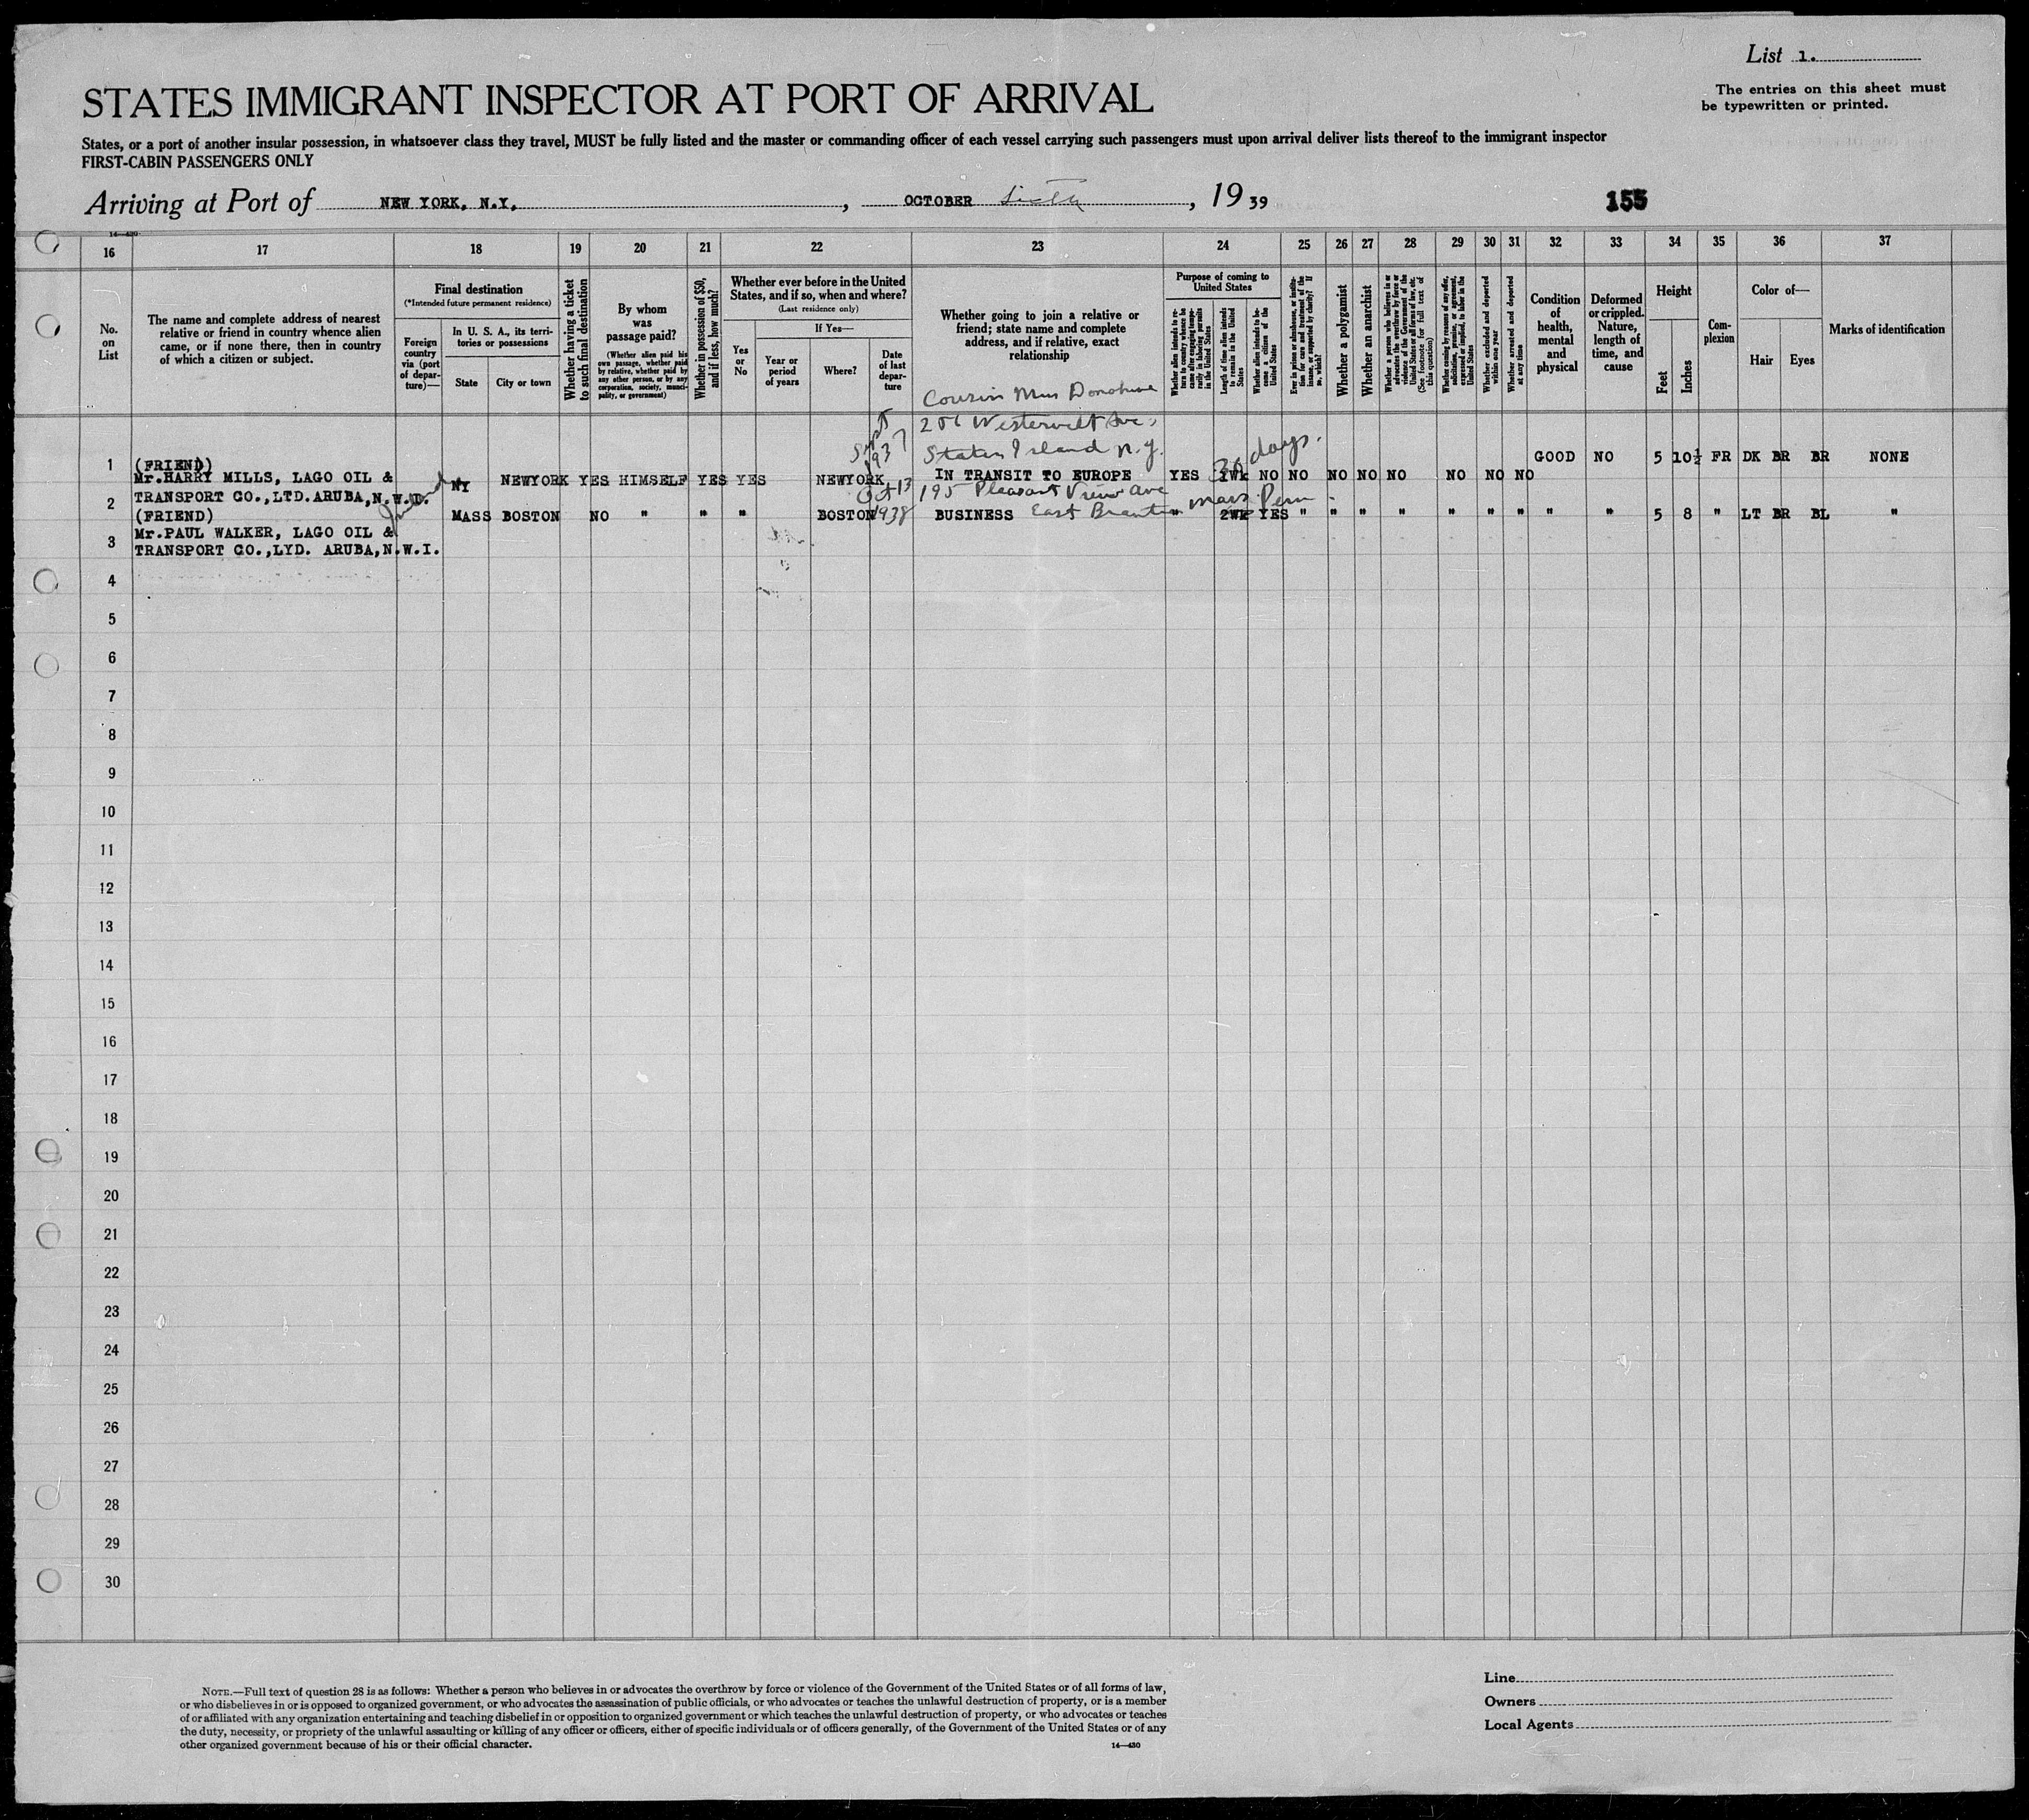 List 1.
The entries on this sheet must
be typewritten or printed.
STATES IMMIGRANT INSPECTOR AT PORT OF ARRIVAL
States, or a port of another insular possession, in whatsoever class they travel, MUST be fully listed and the master or commanding officer of each vessel carrying such passengers must upon arrival deliver lists thereof to the immigrant inspector
FIRST-CABIN PASSENGERS ONLY
Arriving at Port of NEW YORK, N.Y, , OCTOBER Sixth , 19 39
155
14—430
16 17 18 19 20 21 22 23 24 25 26 27 28 29 30 31 32 33 34 35 36 37
No. on List
The name and complete address of nearest
relative or friend in country whence alien
came, or if none there, then in country
of which a citizen or subject.
Final destination
(*Intended future permanent residence)
Foreign country via (port of departure)—
In U. S. A., its territories or possessions
State
City or town
Whether having a ticket to such final destination
By whom was passage paid?
(Whether alien paid his own passage, whether paid by relative, whether paid by any other person, or by any corporation, society, municipality, or government)
Whether in possession of $50, and if less, how much?
Whether ever before in the United
States, and if so, when and where?
(Last residence only)
If Yes—
Yes or No
Year or period of years
Where?
Date of last departure
Whether going to join a relative or
friend; state name and complete
address, and if relative, exact
relationship
Purpose of coming to United States
Whether alien intends to return to country whence he came after engaging temporarily in laboring pursuits in the United States
Length of time alien intends to remain in the United States
Whether alien intends to become a citizen of the United States
Ever in prison or almshouse, or institution for care and treatment of the insane, or supported by charity? If so, which?
Whether a polygamist
Whether an anarchist
Whether a person who believes in or advocates the overthrow by force or violence of the Government of the United States or all forms of law, etc. (See footnote for full text of this question)
Whether coming by reasons of any offer, solicitation, promise, or agreement, expressed or implied, to labor in the United States
Whether excluded and deported within one year
Whether arrested and deported at any time
Condition of health, mental and physical
Deformed or crippled. Nature, length of time, and cause
Height
Feet
Inches
Complexion
Color of—
Hair
Eyes
Marks of identification
Cousin Miss Donohue
Westervelt Ave,
Staten Island N.Y.
Sept 1937
30 days.
1 (FRIEND) GOOD NO 5 10½ FR DK BR BR NONE
Mr.HARRY MILLS, LAGO OIL & NY NEWYORK YES HIMSELF YES YES NEWYORK IN TRANSIT TO EUROPE YES 1Wk NO NO NO NO NO NO NO NO
Oct 13 195 Pleasant View Ave
2 TRANSPORT CO.,LTD.ARUBA,N.W.I.
(FRIEND) MASS BOSTON NO " " " BOSTON 1938 BUSINESS East " 2WK YES " " " " " " " " " 5 8 " LT BR BL "
Mass. Perm
3 Mr.PAUL WALKER, LAGO OIL &
TRANSPORT CO.,LYD. ARUBA,N.W.I.
4
5
6
7
8
9
10
11
12
13
14
15
16
17
18
19
20
21
22
23
24
25
26
27
28
29
30
NOTE.—Full text of question 28 is as follows: Whether a person who believes in or advocates the overthrow by force or violence of the Government of the United States or of all forms of law,
or who disbelieves in or is opposed to organized government, or who advocates the assassination of public officials, or who advocates or teaches the unlawful destruction of property, or is a member
of or affiliated with any organization entertaining and teaching disbelief in or opposition to organized government or which teaches the unlawful destruction of property, or who advocates or teaches
the duty, necessity, or propriety of the unlawful assaulting or killing of any officer or officers, either of specific individuals or of officers generally, of the Government of the United States or of any
other organized government because of his or their official character.
14—430
Line
Owners
Local Agents